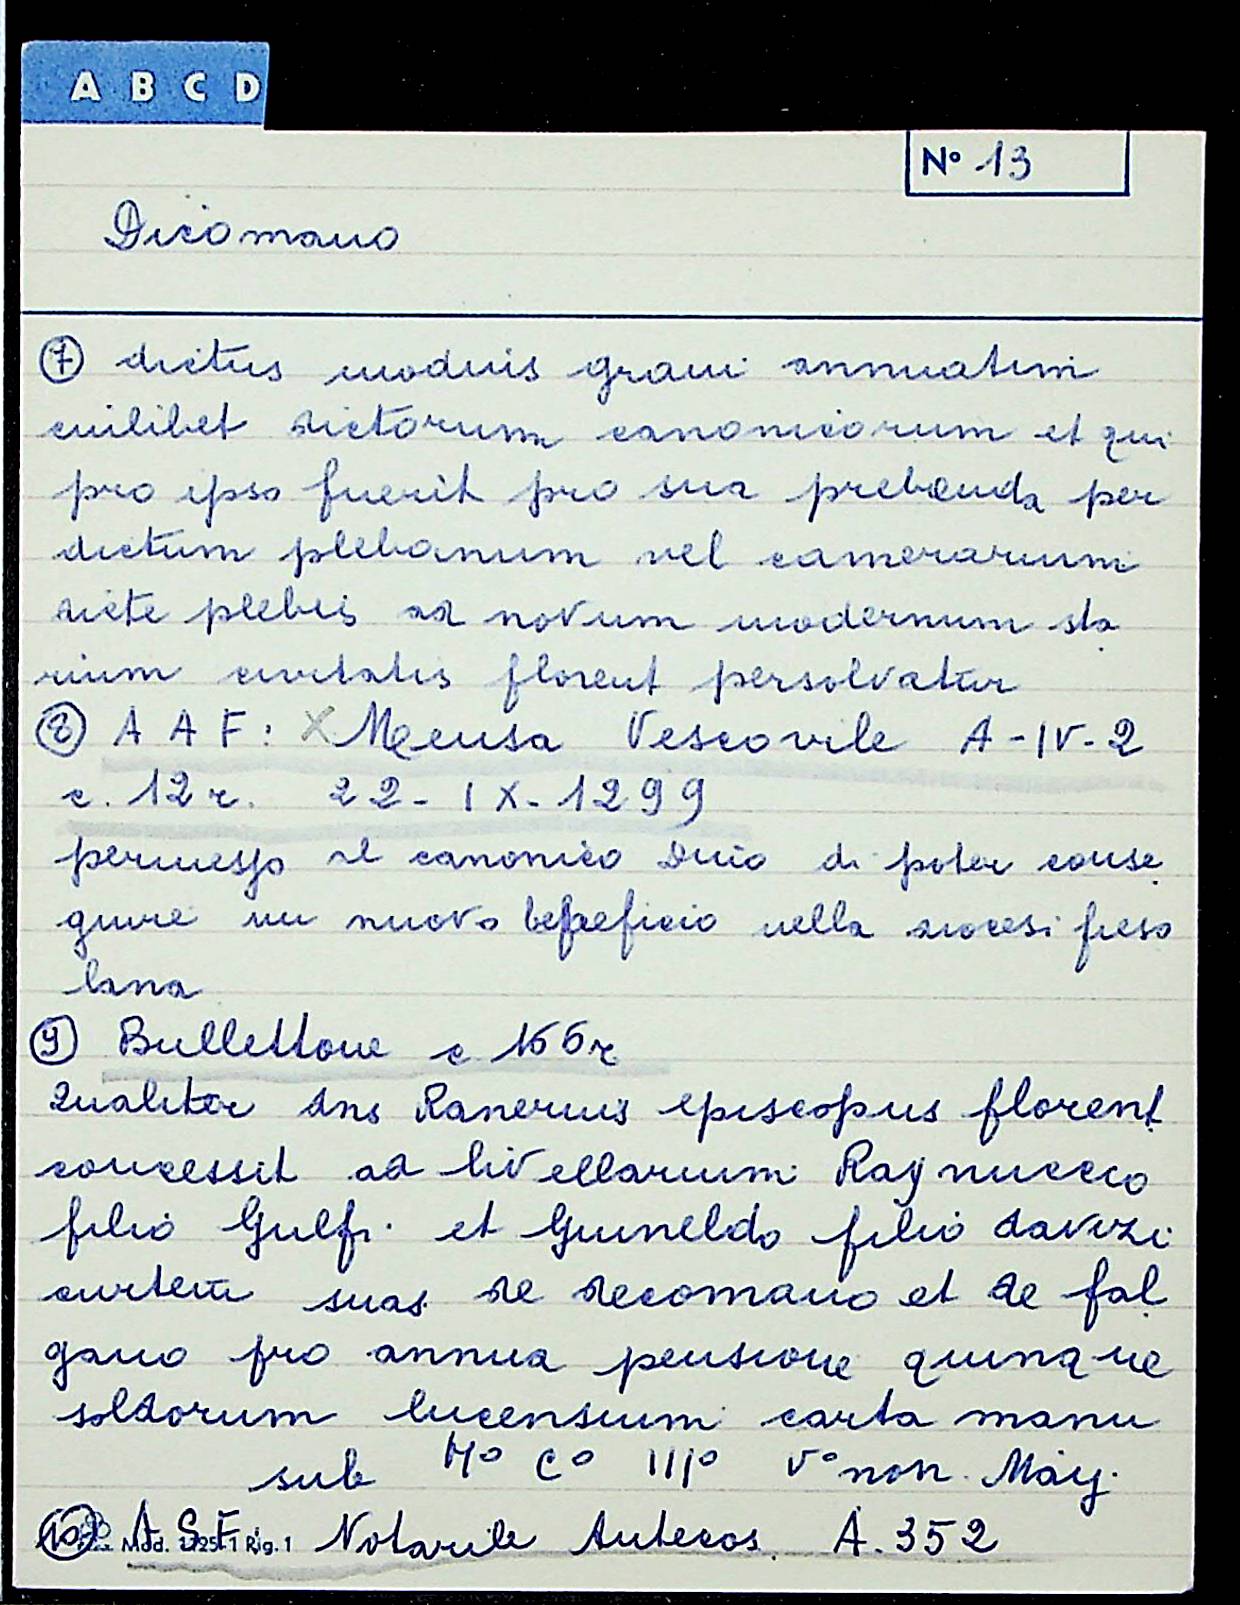 A B C D
N° 13
Dicomano
⑦ dictus modius grani annuatim
cuilibet dictorum canonicorum et qui
pro ipso fuerit pro sua prebenda per
dictum plebanum vel camerarium
dicte plebis ad novum modernum sta
rium civitatis florent persolvatur
⑧ A A F: x Mensa Vescovile A-IV-2
c. 12 r. 22-IX-1299
permesso al canonico Duio di poter conse
guire un nuovo beneficio nella diocesi fieso
lana
⑨ Bullettone c 166r
Qualiter dns Ranerius episcopus florent
concessit ad livellarium Raynuccio
filio Gulfi et Guineldo filio davizi
curtem suas de decomano et de fal
gano pro annua pensione quinque
soldorum lucensium carta manu
sub M° C° III° V° non. Maij.
⑩ A S F Notarile Antecos. A. 352
Mod. 1 Rig. 1